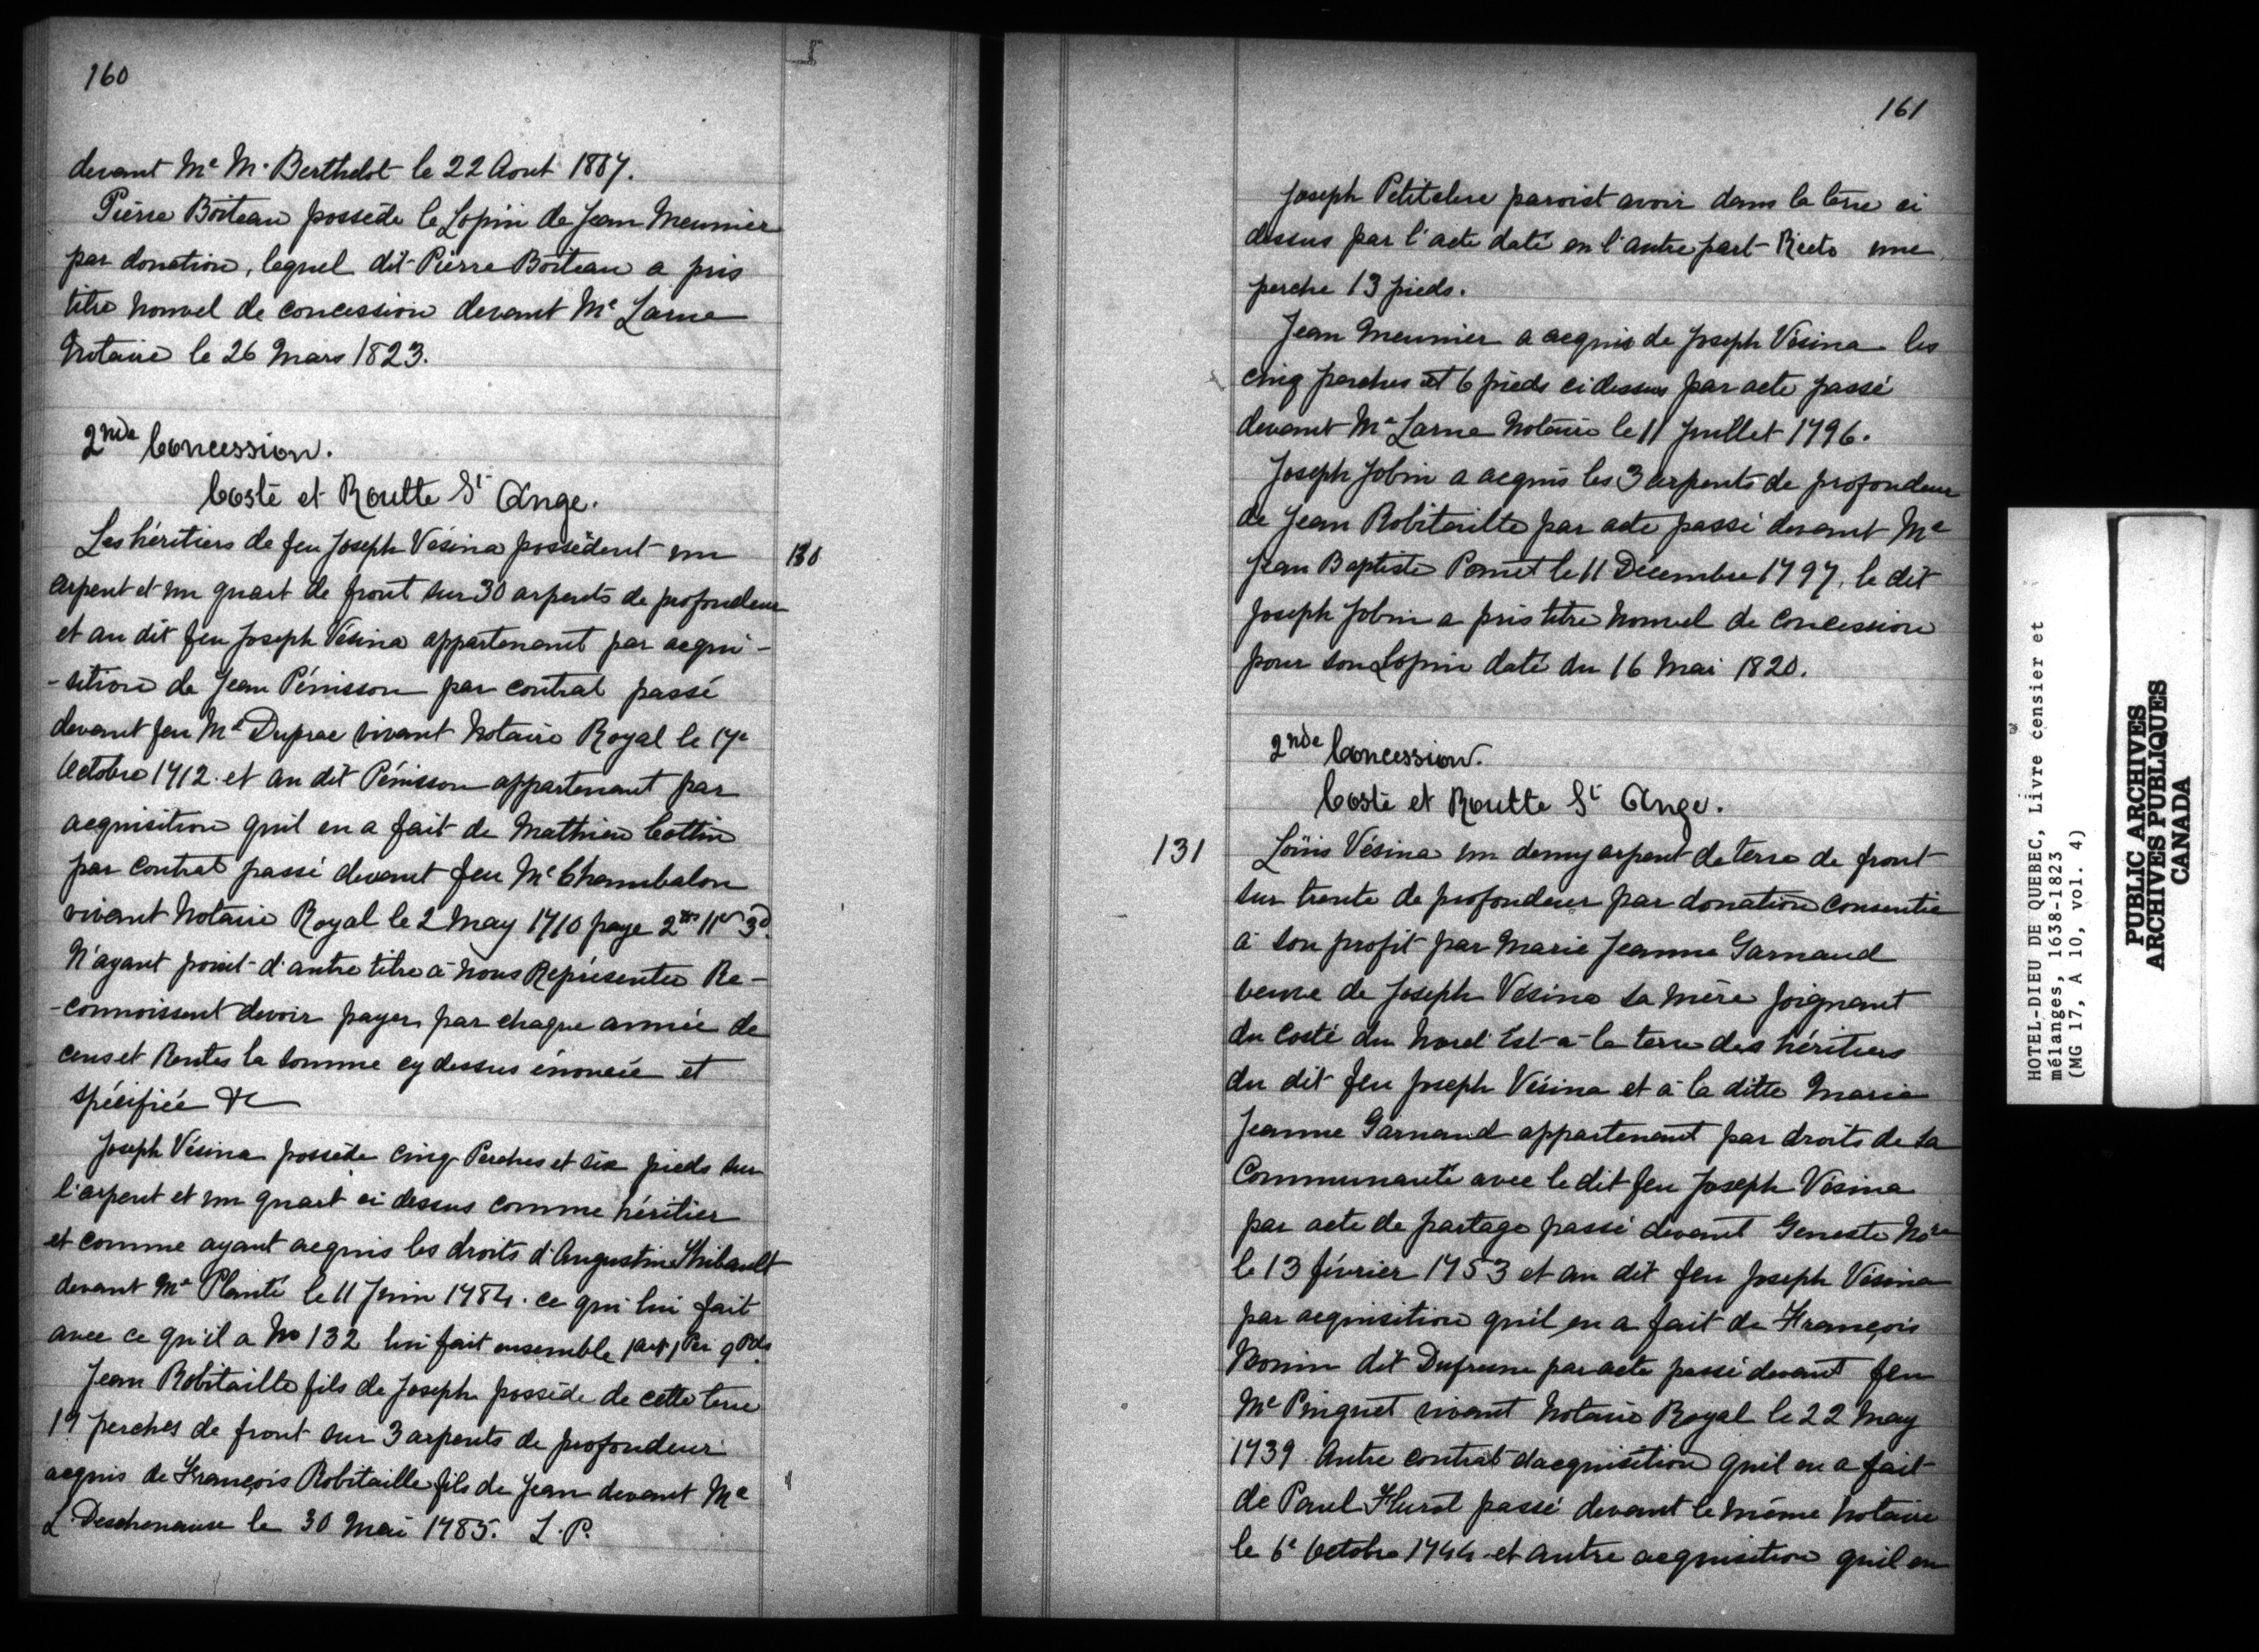 160
devant Me M. Berthelot le 22 Aout 1807.
Piérre Boiteau possède le Lopin de Jean Meunier
par donation, lequel dit Piérre Boiteau a pris
titre nouvel de concession devant Me Larue
Notaire le 26 Mars 1823.
2nde Concession.
Costé et Routte St Ange.
130
Les héritiers de feu Joseph Vésina possèdent un
arpent et un quart de front sur 30 arpents de profondeur
et au dit feu Joseph Vésina appartenant par acqui-
-sition de Jean Pénisson par contrat passé
devant feu Me Duprac vivant Notaire Royal le 17e
Octobre 1712. et au dit Pénisson appartenant par
acquisition quil en a fait de Mathieu Cottin
par contrat passé devant feu Me Chambalon
vivant Notaire Royal le 2 May 1710 paye 2tt 11s 3d.
N'ayant point d'autre titre à nous Représenter Re-
-connoissent devoir payer par chaque année de
cens et Rentes la somme cy dessus énoncée et
spécifiée &c
Joseph Vésina possède cinq Perches et six pieds sur
l'arpent et un quart ci dessus comme héritier
et comme ayant acquis les droits d'Augustin Thibault
devant Me Planté le 11 Juin 1784. ce qui lui fait
avec ce qu'il a No 132 lui fait ensemble 1art 1Per 9Pds.
Jean Robitaille fils de Joseph possède de cette terre
19 perches de front sur 3 arpents de profondeur
acquis de François Robitaille fils de Jean devant Me
L. Deschenaux le 30 Mai 1785. L. P.
161
Joseph Petitclerc paroist avoir dans la terre ci
dessus par l'acte daté en l'autre part Recto une
perche 13 pieds.
Jean Meunier a acquis de Joseph Vésina les
cinq perches et 6 pieds ci dessus par acte passé
devant Me Larue Notaire le 11 Juillet 1796.
Joseph Jobin a acquis les 3 arpents de profondeur
de Jean Robitaille par acte passé devant Me
Jean Baptiste Panet le 11 Décembre 1797, le dit
Joseph Jobin a pris titre nouvel de Concession
pour son Lopin daté du 16 Mai 1820.
2nde Concession.
Costé et Routte St Ange.
131
Loüis Vésina un demy arpent de terre de front
sur trente de profondeur par donation consentie
à son profit par Marie Jeanne Garnaud
veuve de Joseph Vésina sa mère joignant
du costé du Nord Est à la terre des héritiers
du dit feu Joseph Vésina et à la ditte Marie
Jeanne Garnaud appartenant par droits de sa
Communauté avec le dit feu Joseph Vésina
par acte de partage passé devant Geneste Nore
le 13 février 1753 et au dit feu Joseph Vésina
par acquisition quil en a fait de François
Bonin dit Dufresne par acte passé devant feu
Me Pinguet vivant Notaire Royal le 22 May
1739. Autre contrat dacquisition quil en a fait
de Paul Flurot passé devant le même Notaire
le 6e Octobre 1744 et autre acquisition quil en
HOTEL-DIEU DE QUEBEC, Livre censier et
mélanges, 1638-1823
(MG 17, A 10, vol. 4)
PUBLIC ARCHIVES
ARCHIVES PUBLIQUES
CANADA